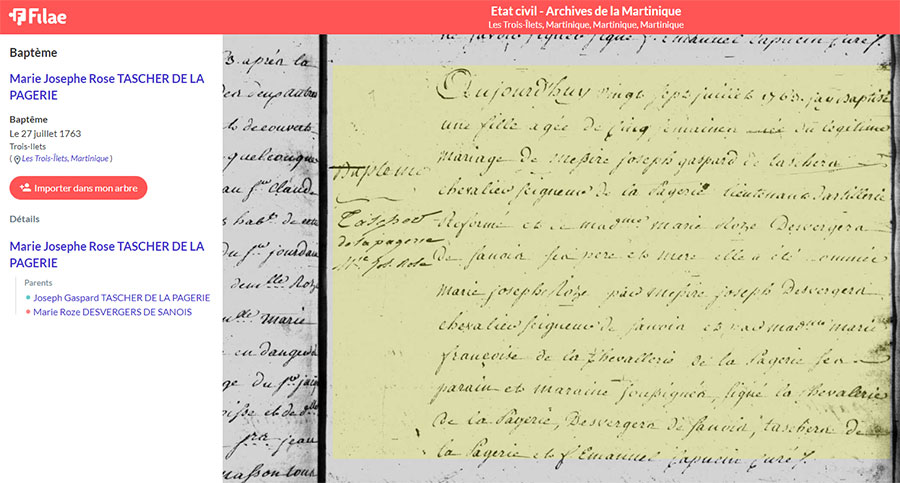 Filae
Etat civil - Archives de la Martinique
Les Trois-Îlets, Martinique, Martinique, Martinique
Baptème
Marie Josephe Rose TASCHER DE LA
PAGERIE
Baptême
Le 27 juillet 1763
Trois-Ilets
( Les Trois-Îlets, Martinique )
Importer dans mon arbre
Détails
Marie Josephe Rose TASCHER DE LA
PAGERIE
Parents
Joseph Gaspard TASCHER DE LA PAGERIE
Marie Roze DESVERGERS DE SANOIS
3. après la
quelconque
au sr. Claude
du sr. jourdan
marie
en danger
jean
Bapteme
de la pagerie
Aujourdhuy vingt sept juillet 1763. jay Baptisé
une fille agée de cinq semaines née du legitime
mariage de Messire joseph gaspard de taschera
chevalier seigneur de la Pagerie lieutenant dartillerie
Reformé et de mad. marie Roze Desvergera
de sanoix ses pere et mere elle a eté nommée
marie josephe Roze par Messire joseph Desvergera
chevalier seigneur de sanoix et par mad. marie
françoise de la Chevallerie de la Pagerie ses
parain et maraine soussignés, signé la chevalerie
de la Pagerie, Desvergera de sanoix, taschera de
la Pagerie et f. Emanuel capucin curé.